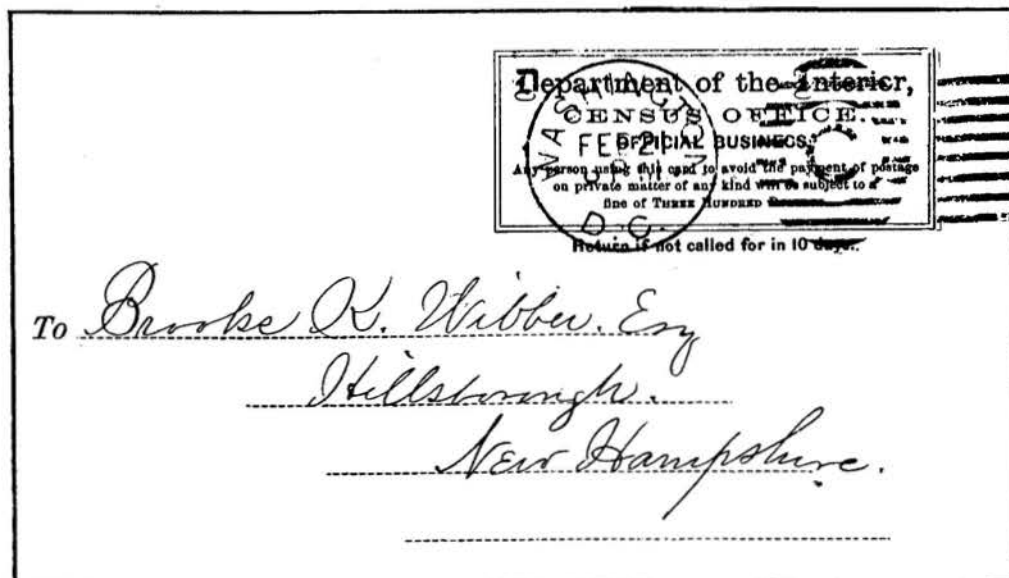 Department of the Interior,
CENSUS OFFICE.
OFFICIAL BUSINESS.
Any person using this card to avoid the payment of postage
on private matter of any kind will be subject to a
fine of THREE HUNDRED
Return if not called for in 10 days.
WASHINGTON
FEB 21
D.C.
C
To Brooke K. Wibber. Esq
Hillsborough.
New Hampshire.